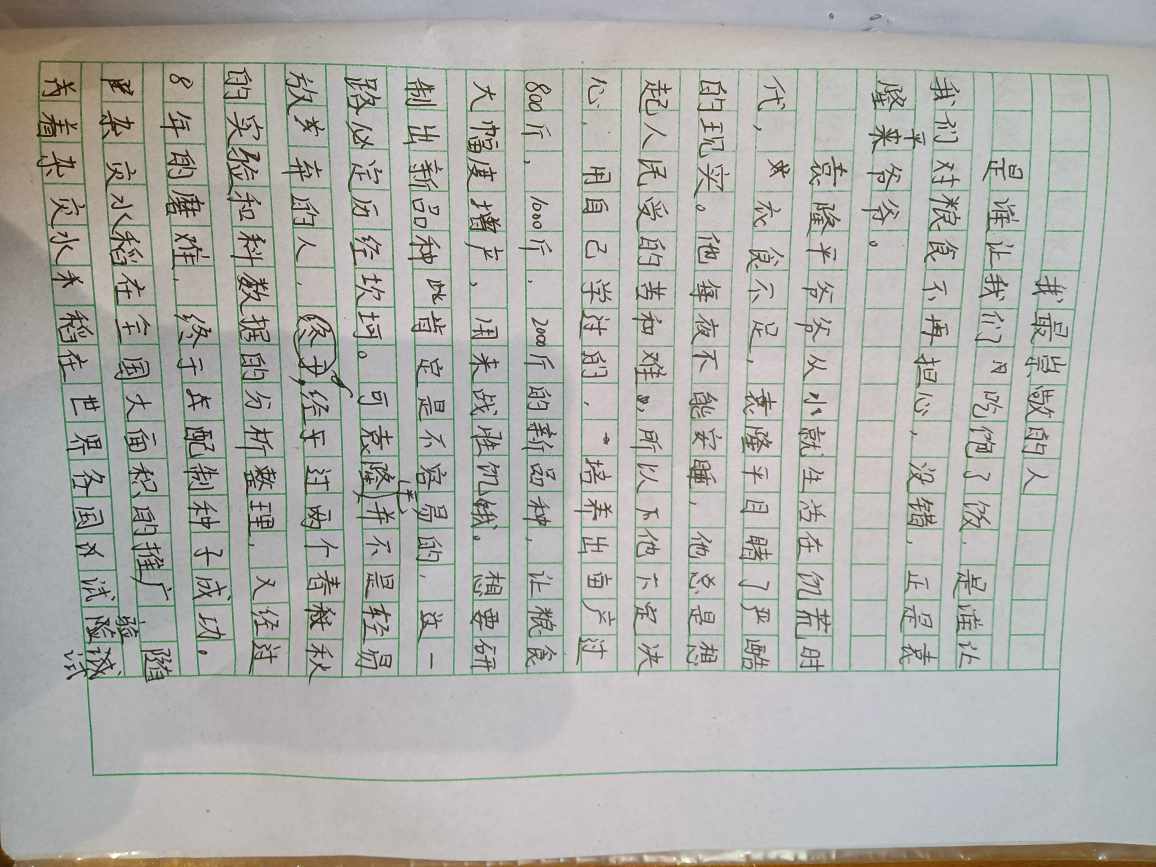 我最崇敬的人
是谁让我们吃饱了饭，是谁让
我们对粮食不再担心，没错，正是袁
隆平爷爷。
袁隆平爷爷从小就生活在饥荒时
代，衣食不足，袁隆平目睹了严酷
的现实。他每夜不能安睡，他总是想
起人民受的苦和难，所以下他下定决
心，用自己学过的，培养出亩产过
800斤，1000斤，2000斤的新品种，让粮食
大幅度增产，用来战胜饥饿。想要研
制出新品种此肯定是不容易的，这一
路必定历经坎坷。可袁隆平并不是轻易
放弃的人，经于过两个春秋
的实验和科数据的分析整理，入经过
8年的磨难，终于配制种子成功。
杂交水稻在全国大面积的推广 随
着杂交水稻在世界各国试验试